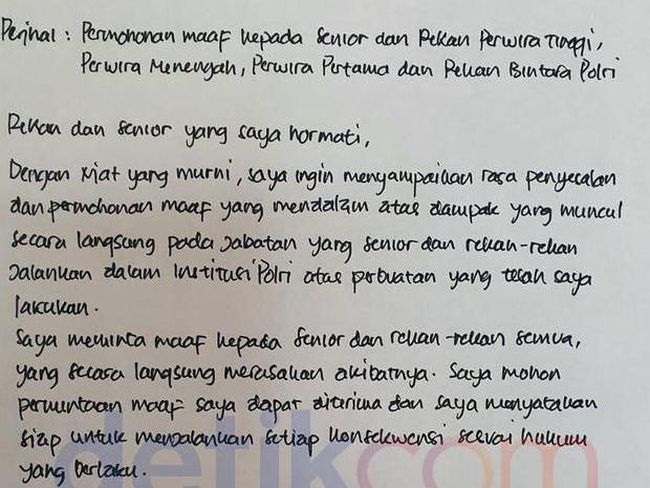 Perihal : Permohonan maaf kepada senior dan Rekan Perwira Tinggi,
Perwira Menengah, Perwira Pertama dan Rekan Bintara Polri
Rekan dan senior yang saya hormati,
Dengan niat yang murni, saya ingin menyampaikan rasa penyesalan
dan permohonan maaf yang mendalam atas dampak yang muncul
secara langsung pada jabatan yang senior dan rekan-rekan
jalankan dalam institusi Polri atas perbuatan yang telah saya
lakukan.
Saya meminta maaf kepada senior dan rekan-rekan semua,
yang secara langsung merasakan akibatnya. Saya mohon
permintaan maaf saya dapat diterima dan saya menyatakan
siap untuk menjalankan setiap konsekwensi sesuai hukum
yang berlaku.
detikcom